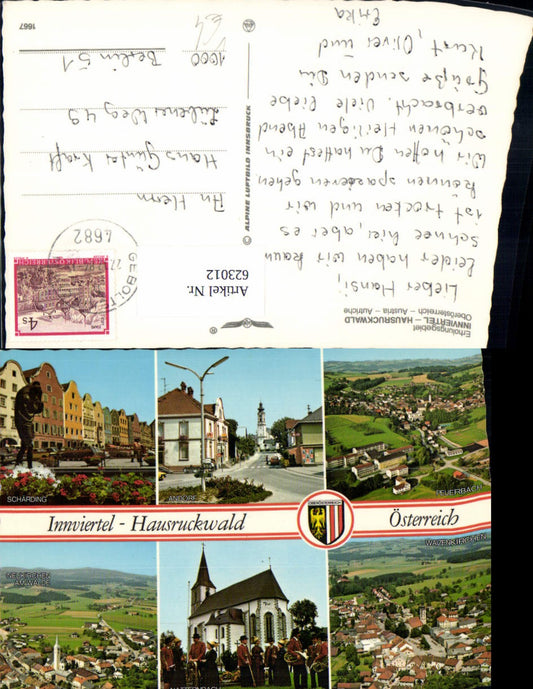 Erholungsgebiet
INNVIERTEL – HAUSRUCKWALD
Oberösterreich – Austria – Autriche
Lieber Hansi,
Leider haben wir kaum
schnee hier, aber es
ist trocken und wir
können spazieren gehen.
Wir hoffen Du hattest ein
schönen Heiligen Abend
verbracht. Viele liebe
Grüße senden Dir
Kurt, Oliver und
Erika
© ALPINE LUFTBILD INNSBRUCK
4682
GEBOLT
REPUBLIK ÖSTERREICH
4 S
Artikel Nr.
623012
An Herrn
Hans Günter Kraft
Lübener Weg 49
1000 Berlin 51
1667
SCHÄRDING
ANDORF
PEUERBACH
Innviertel - Hausruckwald
OBERÖSTERREICH
Österreich
NEUKIRCHEN
AM WALDE
NATTERNBACH
WAIZENKIRCHEN